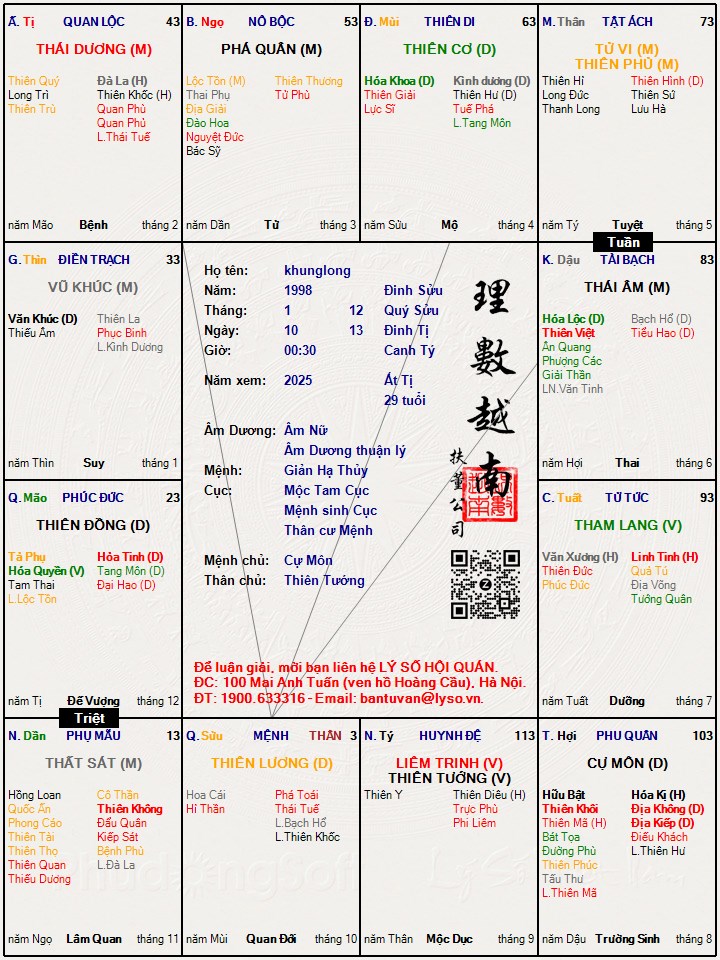 Ấ. Tị QUAN LỘC 43
THÁI DƯƠNG (M)
Thiên Quý Đà La (H)
Long Trì Thiên Khốc (H)
Thiên Trù Quan Phù
Quan Phủ
L.Thái Tuế
năm Mão Bệnh tháng 2
B. Ngọ NÔ BỘC 53
PHÁ QUÂN (M)
Lộc Tồn (M) Thiên Thương
Thai Phụ Tử Phù
Địa Giải
Đào Hoa
Nguyệt Đức
Bác Sỹ
năm Dần Tử tháng 3
Đ. Mùi THIÊN DI 63
THIÊN CƠ (D)
Hóa Khoa (D) Kình dương (D)
Thiên Giải Thiên Hư (D)
Lực Sĩ Tuế Phá
L.Tang Môn
năm Sửu Mộ tháng 4
M. Thân TẬT ÁCH 73
TỬ VI (M)
THIÊN PHỦ (M)
Thiên Hỉ Thiên Hình (D)
Long Đức Thiên Sứ
Thanh Long Lưu Hà
năm Tý Tuyệt tháng 5
Tuần
G. Thìn ĐIỀN TRẠCH 33
VŨ KHÚC (M)
Văn Khúc (D) Thiên La
Thiếu Âm Phục Binh
L.Kình Dương
năm Thìn Suy tháng 1
Họ tên: khunglong
Năm: 1998 Đinh Sửu
Tháng: 1 12 Quý Sửu
Ngày: 10 13 Đinh Tị
Giờ: 00:30 Canh Tý
Năm xem: 2025 Ất Tị
29 tuổi
Âm Dương: Âm Nữ
Âm Dương thuận lý
Mệnh: Giản Hạ Thủy
Cục: Mộc Tam Cục
Mệnh sinh Cục
Thân cư Mệnh
Mệnh chủ: Cự Môn
Thân chủ: Thiên Tướng
理數越南
扶董公司
Để luận giải, mời bạn liên hệ LÝ SỐ HỘI QUÁN.
ĐC: 100 Mai Anh Tuấn (ven hồ Hoàng Cầu), Hà Nội.
ĐT: 1900.633316 - Email: bantuvan@lyso.vn.
K. Dậu TÀI BẠCH 83
THÁI ÂM (M)
Hóa Lộc (D) Bạch Hổ (D)
Thiên Việt Tiểu Hao (D)
Ân Quang
Phượng Các
Giải Thần
LN.Văn Tinh
năm Hợi Thai tháng 6
Q. Mão PHÚC ĐỨC 23
THIÊN ĐỒNG (D)
Tả Phụ Hỏa Tinh (D)
Hóa Quyền (V) Tang Môn (D)
Tam Thai Đại Hao (D)
L.Lộc Tồn
năm Tị Đế Vượng tháng 12
C. Tuất TỬ TỨC 93
THAM LANG (V)
Văn Xương (H) Linh Tinh (H)
Thiên Đức Quả Tú
Phúc Đức Địa Võng
Tướng Quân
năm Tuất Dưỡng tháng 7
Triệt
N. Dần PHỤ MẪU 13
THẤT SÁT (M)
Hồng Loan Cô Thần
Quốc Ấn Thiên Không
Phong Cáo Đẩu Quân
Thiên Tài Kiếp Sát
Thiên Thọ Bệnh Phù
Thiên Quan L.Đà La
Thiếu Dương
năm Ngọ Lâm Quan tháng 11
Q. Sửu MỆNH THÂN 3
THIÊN LƯƠNG (D)
Hoa Cái Phá Toái
Hỉ Thần Thái Tuế
L.Bạch Hổ
L.Thiên Khốc
năm Mùi Quan Đới tháng 10
N. Tý HUYNH ĐỆ 113
LIÊM TRINH (V)
THIÊN TƯỚNG (V)
Thiên Y Thiên Diêu (H)
Trực Phù
Phi Liêm
năm Thân Mộc Dục tháng 9
T. Hợi PHU QUÂN 103
CỰ MÔN (D)
Hữu Bật Hóa Kị (H)
Thiên Khôi Địa Không (D)
Thiên Mã (H) Địa Kiếp (D)
Bát Tọa Điếu Khách
Đường Phù L.Thiên Hư
Thiên Phúc
Tấu Thư
L.Thiên Mã
năm Dậu Trường Sinh tháng 8